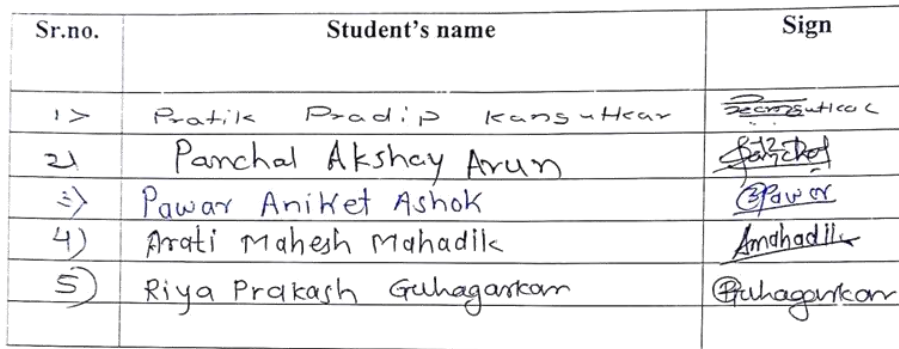 Sr.no. Student's name Sign
1> Pratik Pradip Kansutkar
2) Panchal Akshay Arun
3) Pawar Aniket Ashok Pawar
4) Arati Mahesh Mahadik Amahadik
5) Riya Prakash Guhagarkar Guhagarkar